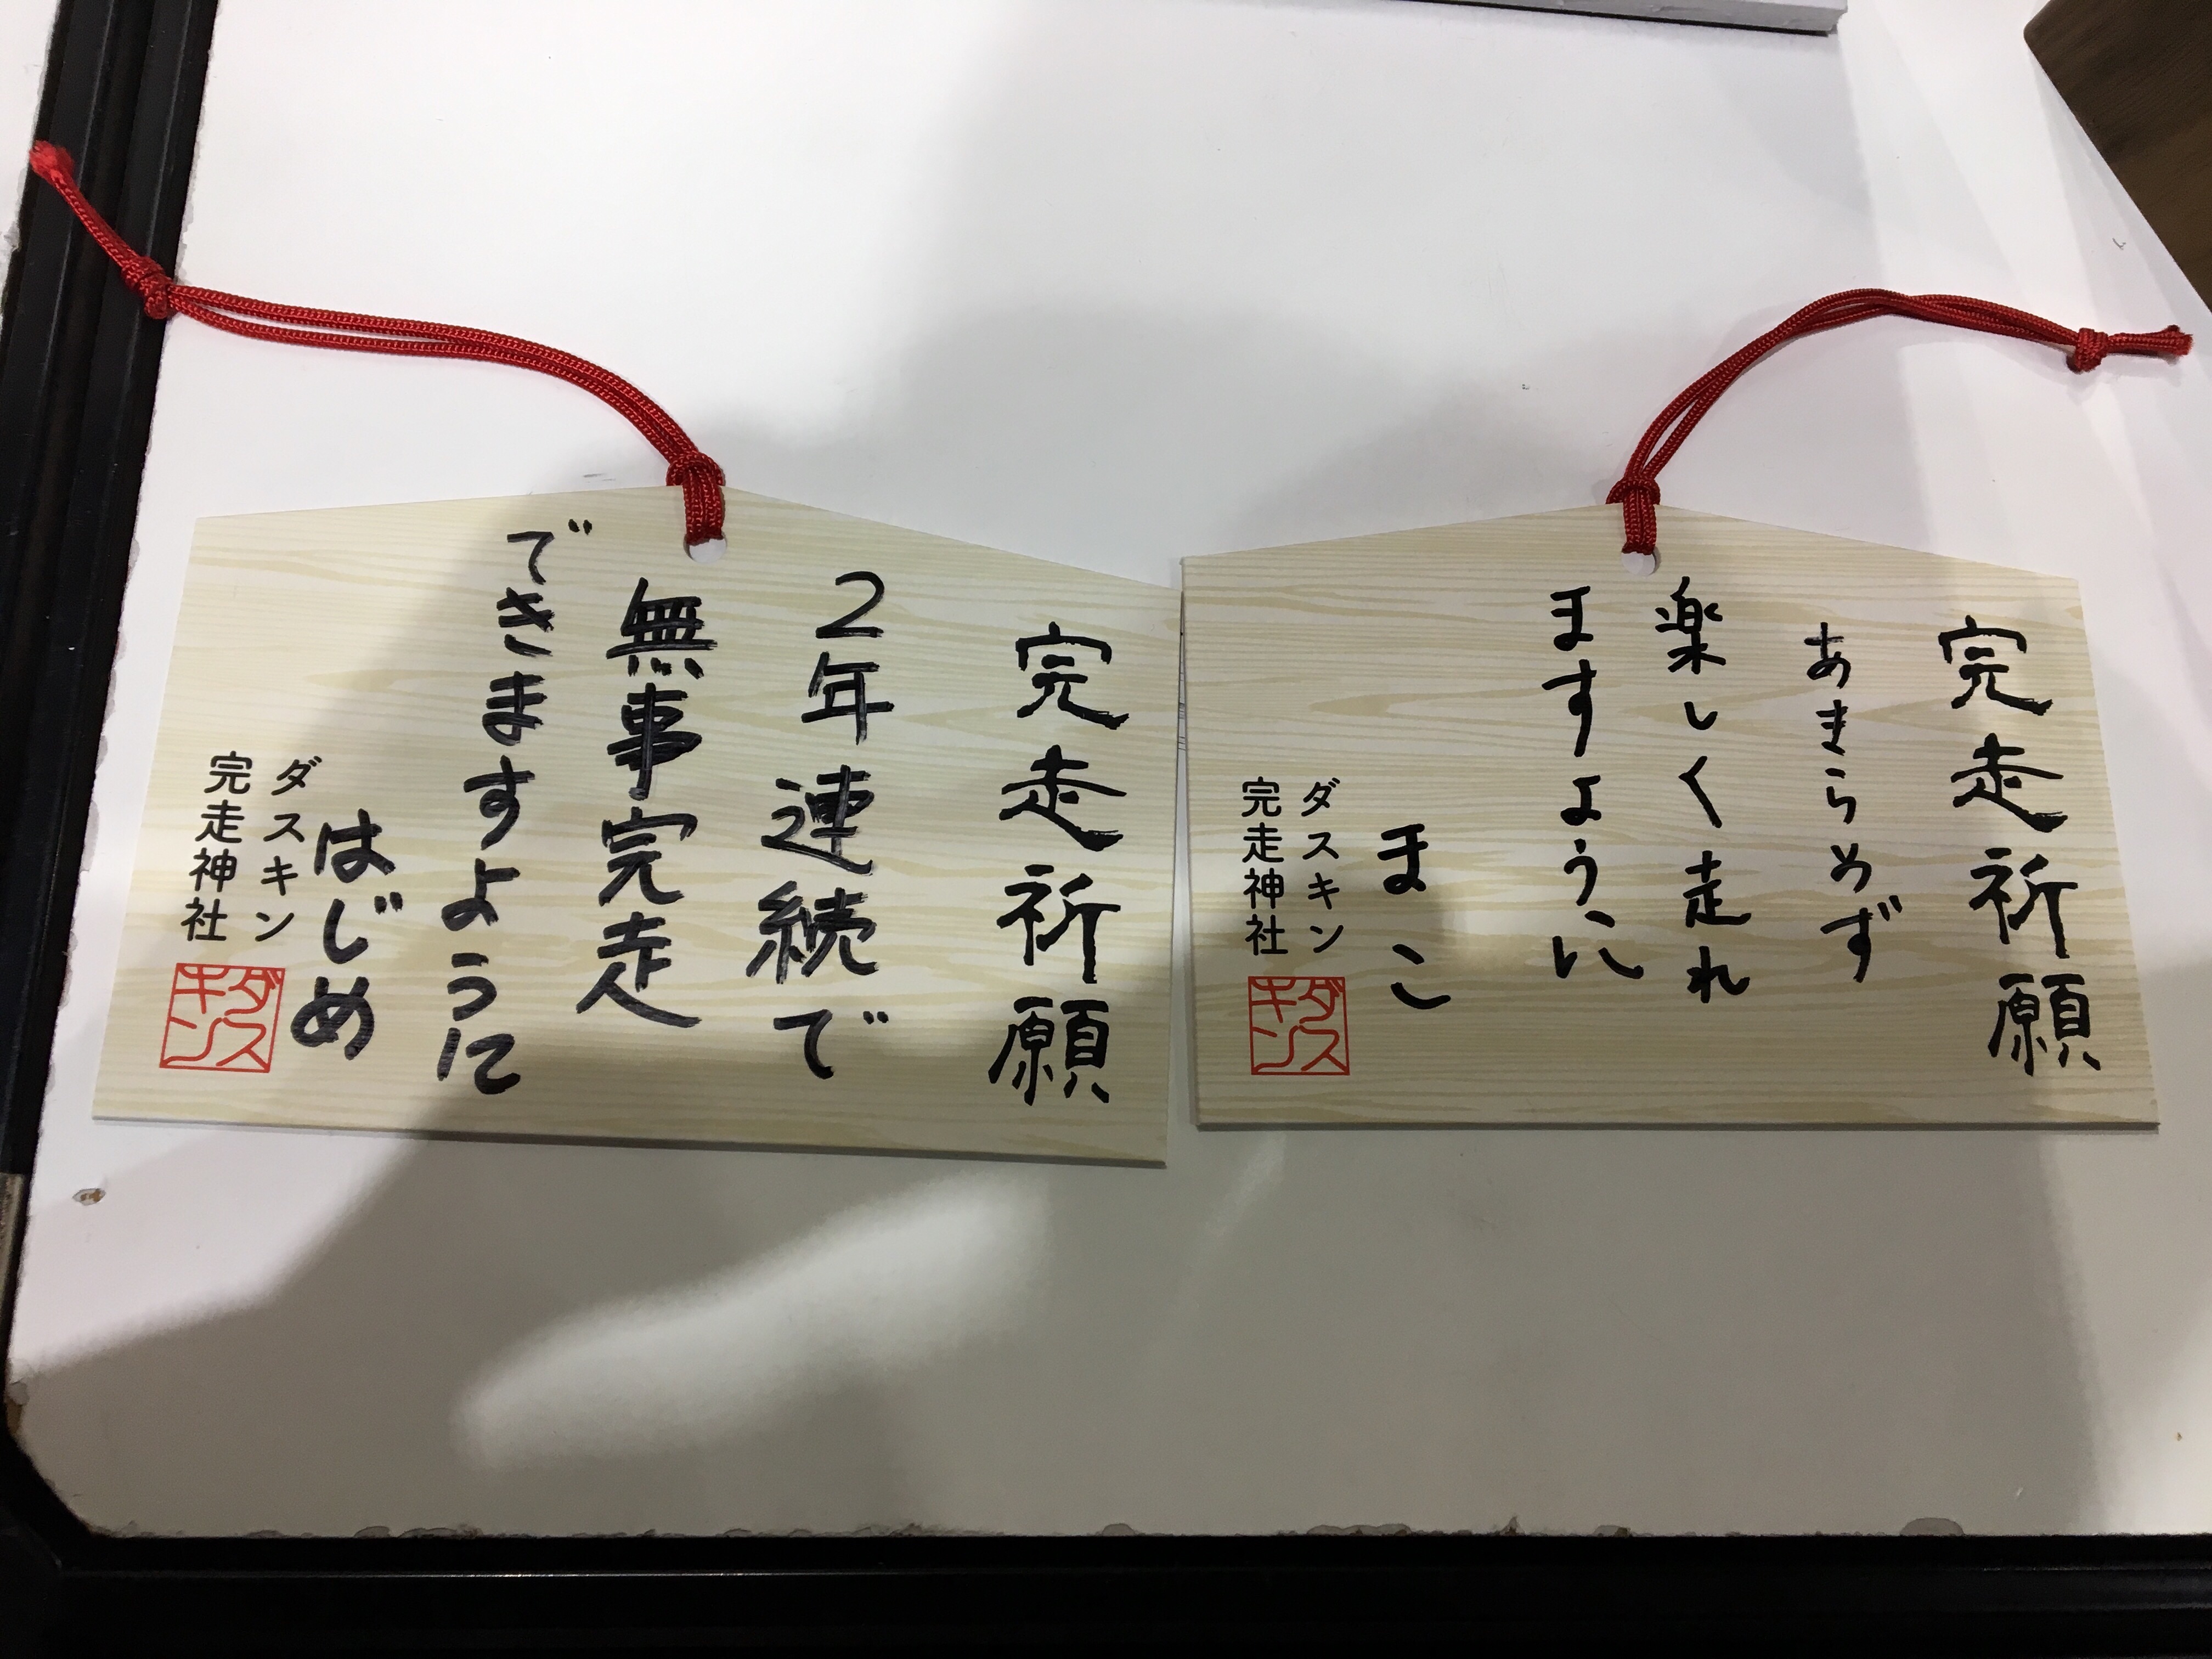 完走祈願
あきらめず
楽しく走れ
ますように
まこ
ダスキン
完走神社
ダス
キン
完走祈願
2年連続で
無事完走
できますように
はじめ
ダスキン
完走神社
ダス
キン